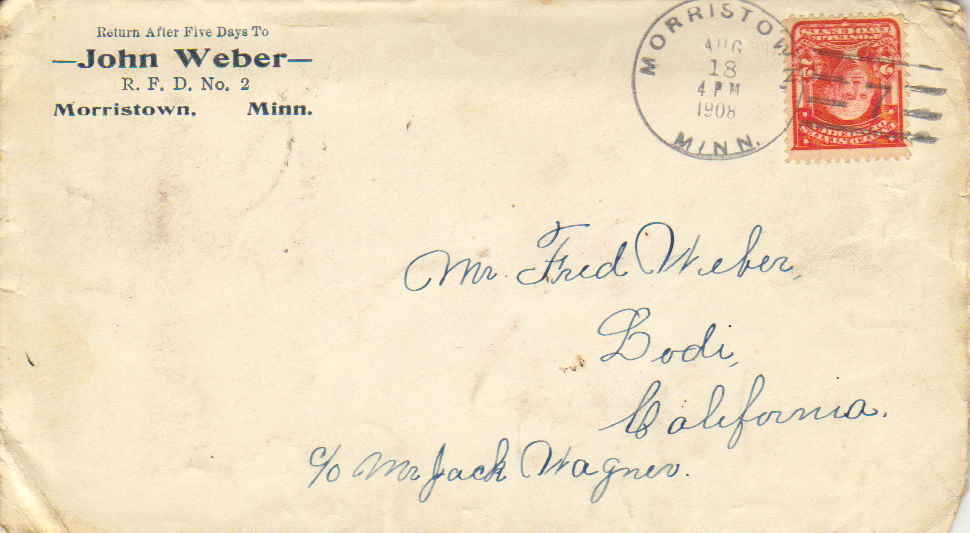 Return After Five Days To
—John Weber—
R. F. D. No. 2
Morristown, Minn.
MORRISTOWN
AUG
18
4 PM
1908
MINN.
2 2
Mr. Fred Weber,
Lodi,
California.
c/o Mr Jack Wagner.